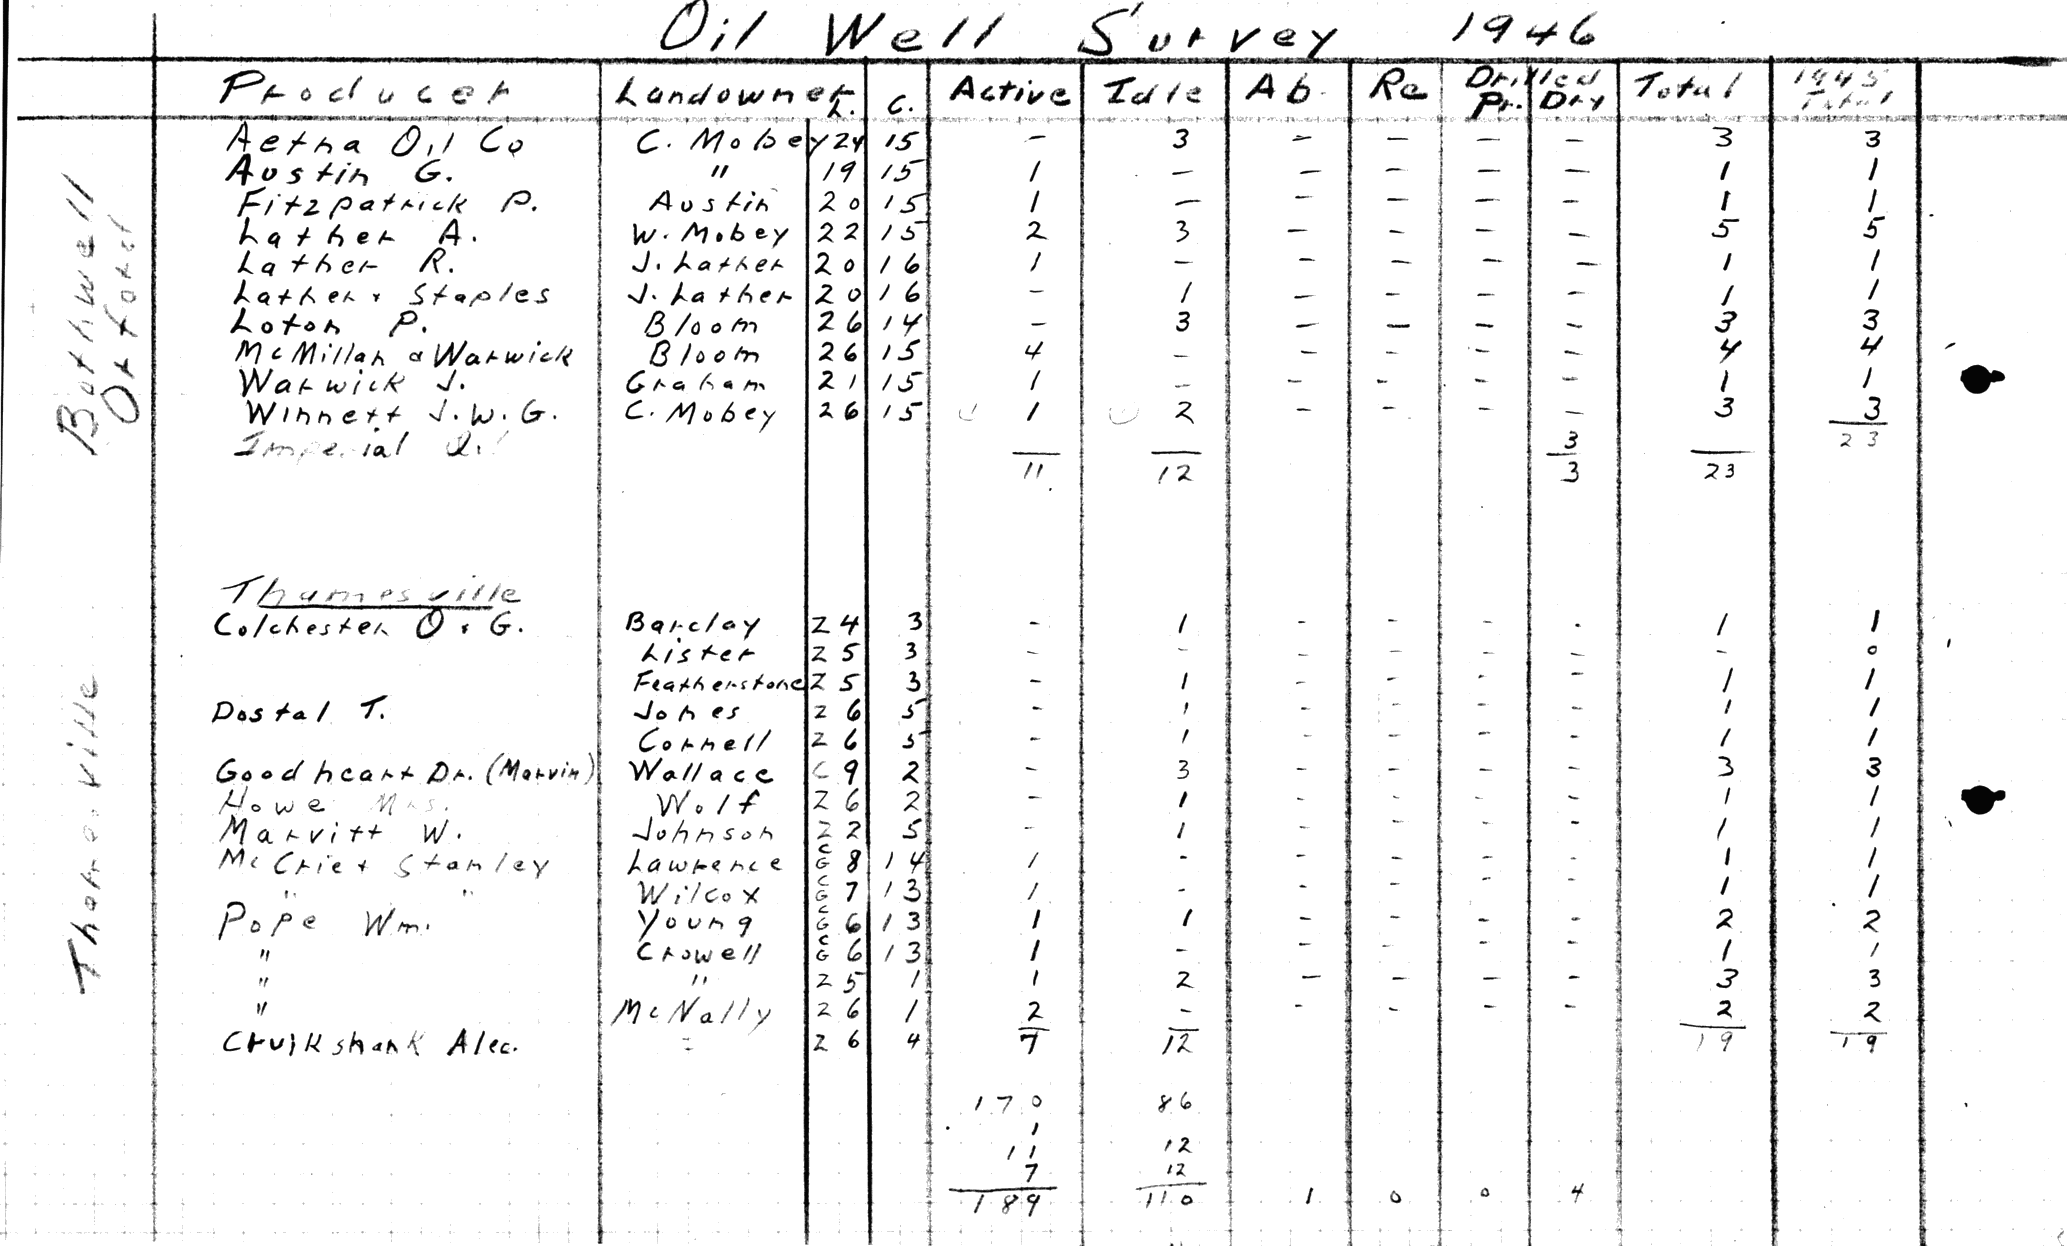 Oil Well Survey 1946
Producer Landowner L. C. Active Idle Ab. Re Drilled Pr. Dry Total 1945 Total
Bothwell
Orford
Aetna Oil Co C. Mobey 24 15 - 3 - - - - 3 3
Austin G. " 19 15 1 - - - - - 1 1
Fitzpatrick P. Austin 20 15 1 - - - - - 1 1
Lather A. W. Mobey 22 15 2 3 - - - - 5 5
Lather R. J. Lather 20 16 1 - - - - - 1 1
Lather & Staples J. Lather 20 16 - 1 - - - - 1 1
Loton P. Bloom 26 14 - 3 - - - - 3 3
McMillan & Warwick Bloom 26 15 4 - - - - - 4 4
Warwick J. Graham 21 15 1 - - - - - 1 1
Winnett J. W. G. C. Mobey 26 15 1 2 - - - - 3 3
Imperial Oil 3 23
11 12 3 23
Thamesville
Thamesville
Colchester O & G. Barclay Z 4 3 - 1 - - - - 1 1
Lister Z 5 3 - - - - - - - 0
Featherstone Z 5 3 - 1 - - - - 1 1
Dostal T. Jones Z 6 5 - 1 - - - - 1 1
Cornell Z 6 5 - 1 - - - - 1 1
Goodheart Dr. (Marvin) Wallace C 9 2 - 3 - - - - 3 3
Howe Mrs. Wolf Z 6 2 - 1 - - - - 1 1
Marvitt W. Johnson Z 2 5 - 1 - - - - 1 1
McCrie & Stanley Lawrence CG 8 14 1 - - - - - 1 1
" " Wilcox CG 7 13 1 - - - - - 1 1
Pope Wm. Young CG 6 13 1 1 - - - - 2 2
" Crowell CG 6 13 1 - - - - - 1 1
" " Z 5 1 1 2 - - - - 3 3
" McNally Z 6 1 2 - - - - - 2 2
Cruikshank Alec. Z 6 4 7 12 19 19
170 86
1
11 12
7 12
189 110 1 0 0 4